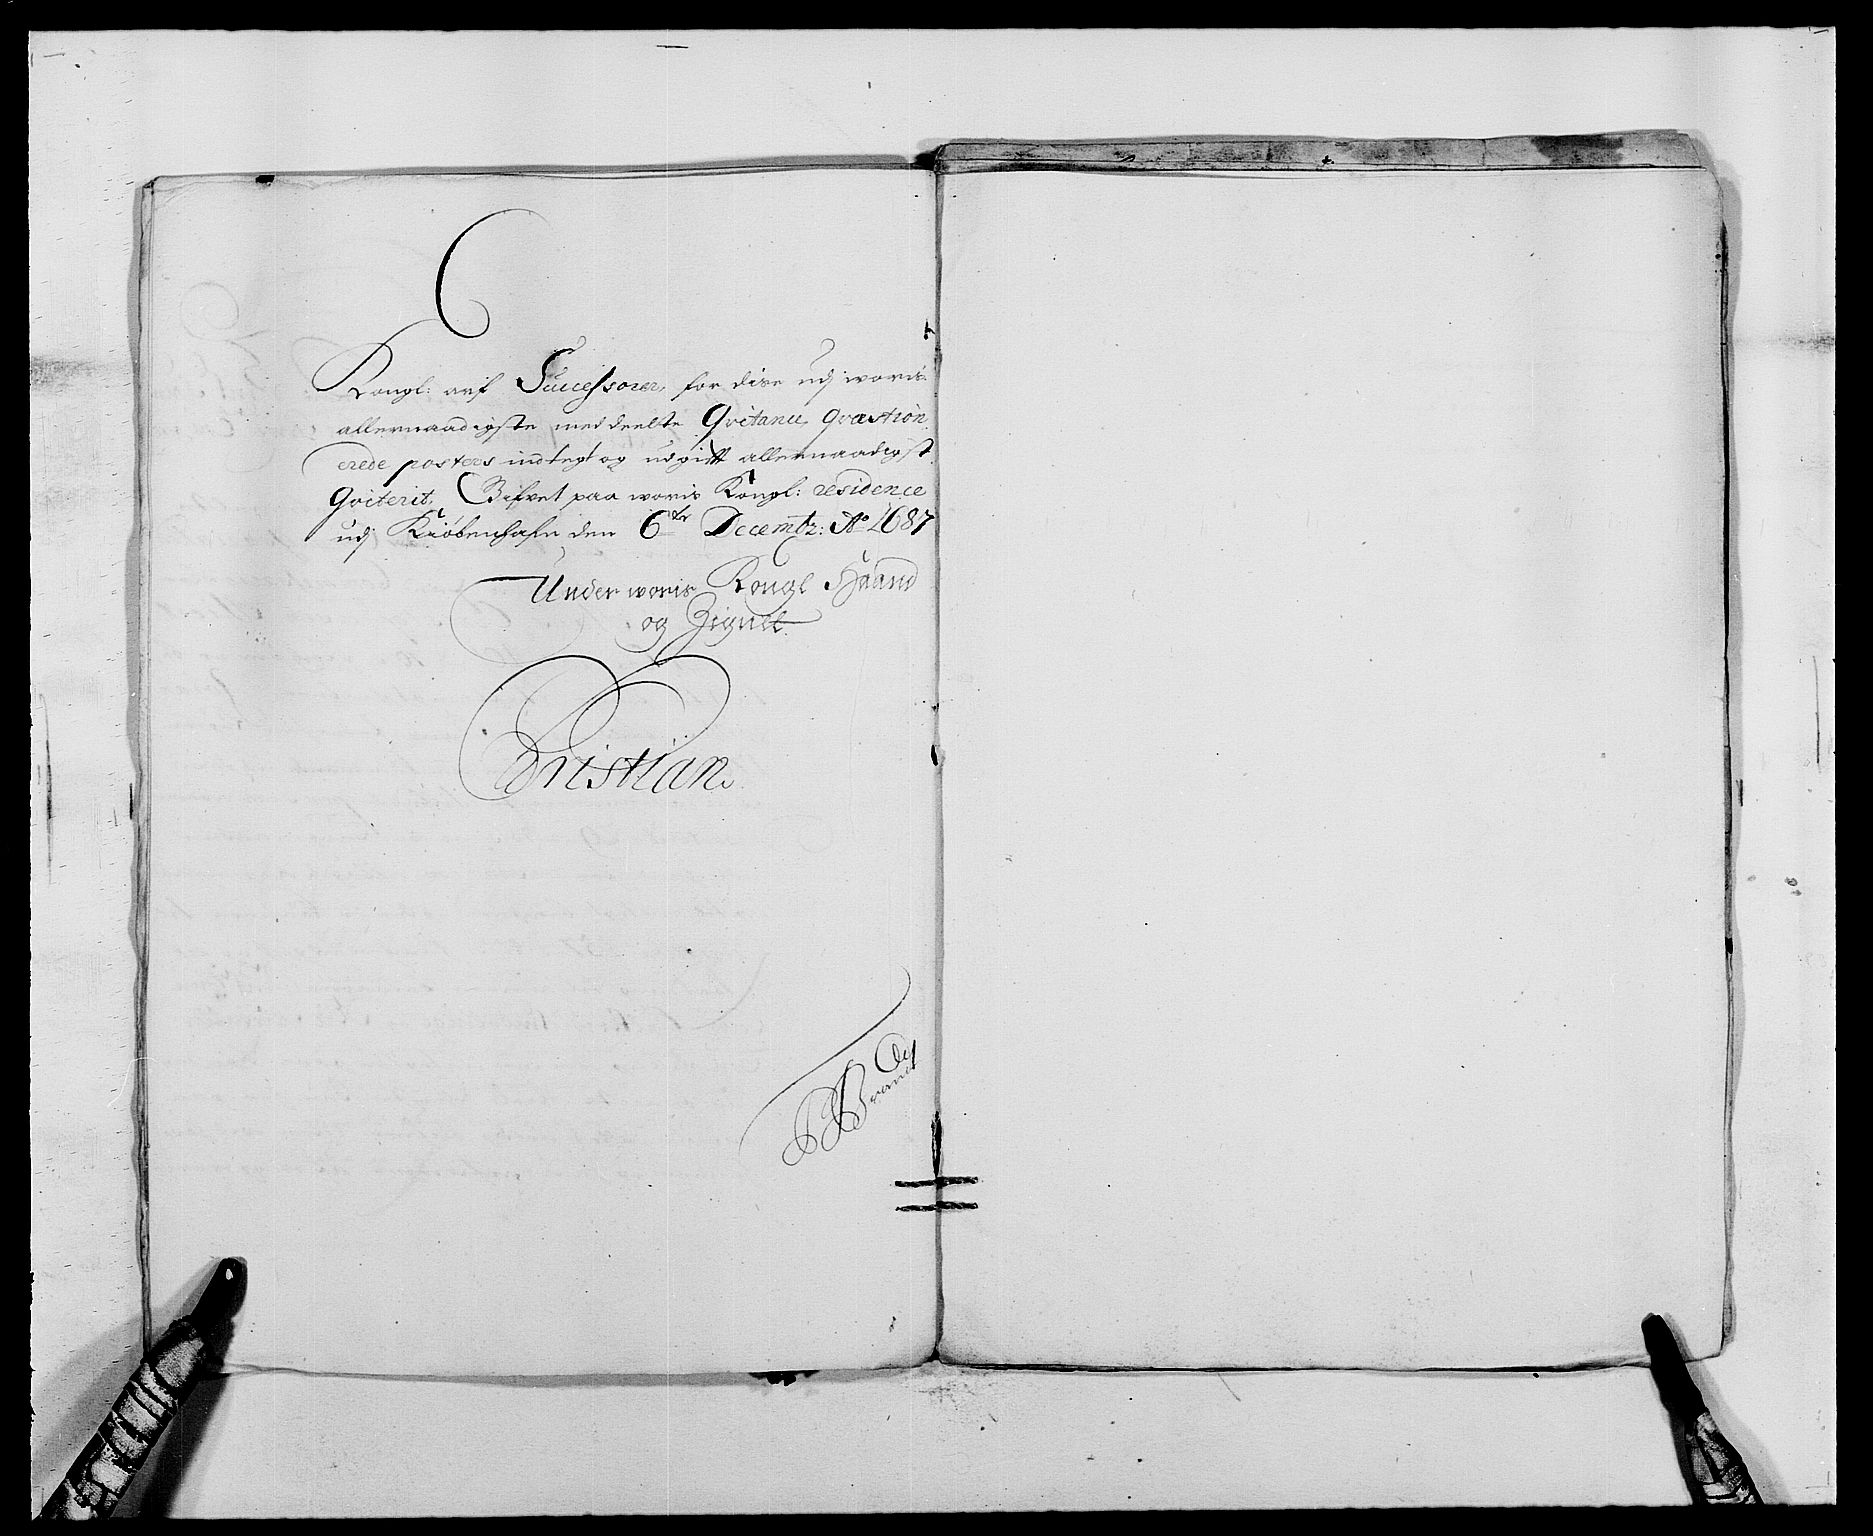 Kongl: arf Successorer, for dise udj woris
allernaadigste meddeelte Qvitance, Qvæstion
erede posters indtegt og udgifft allernaadigst
Qviterit, Gifvet paa woris Kongl: residence
udj Kiøbenhafn den 6te Decembr: Ao 1687
Under woris Kongl Haand
og Zignet
Christian
PBrandt